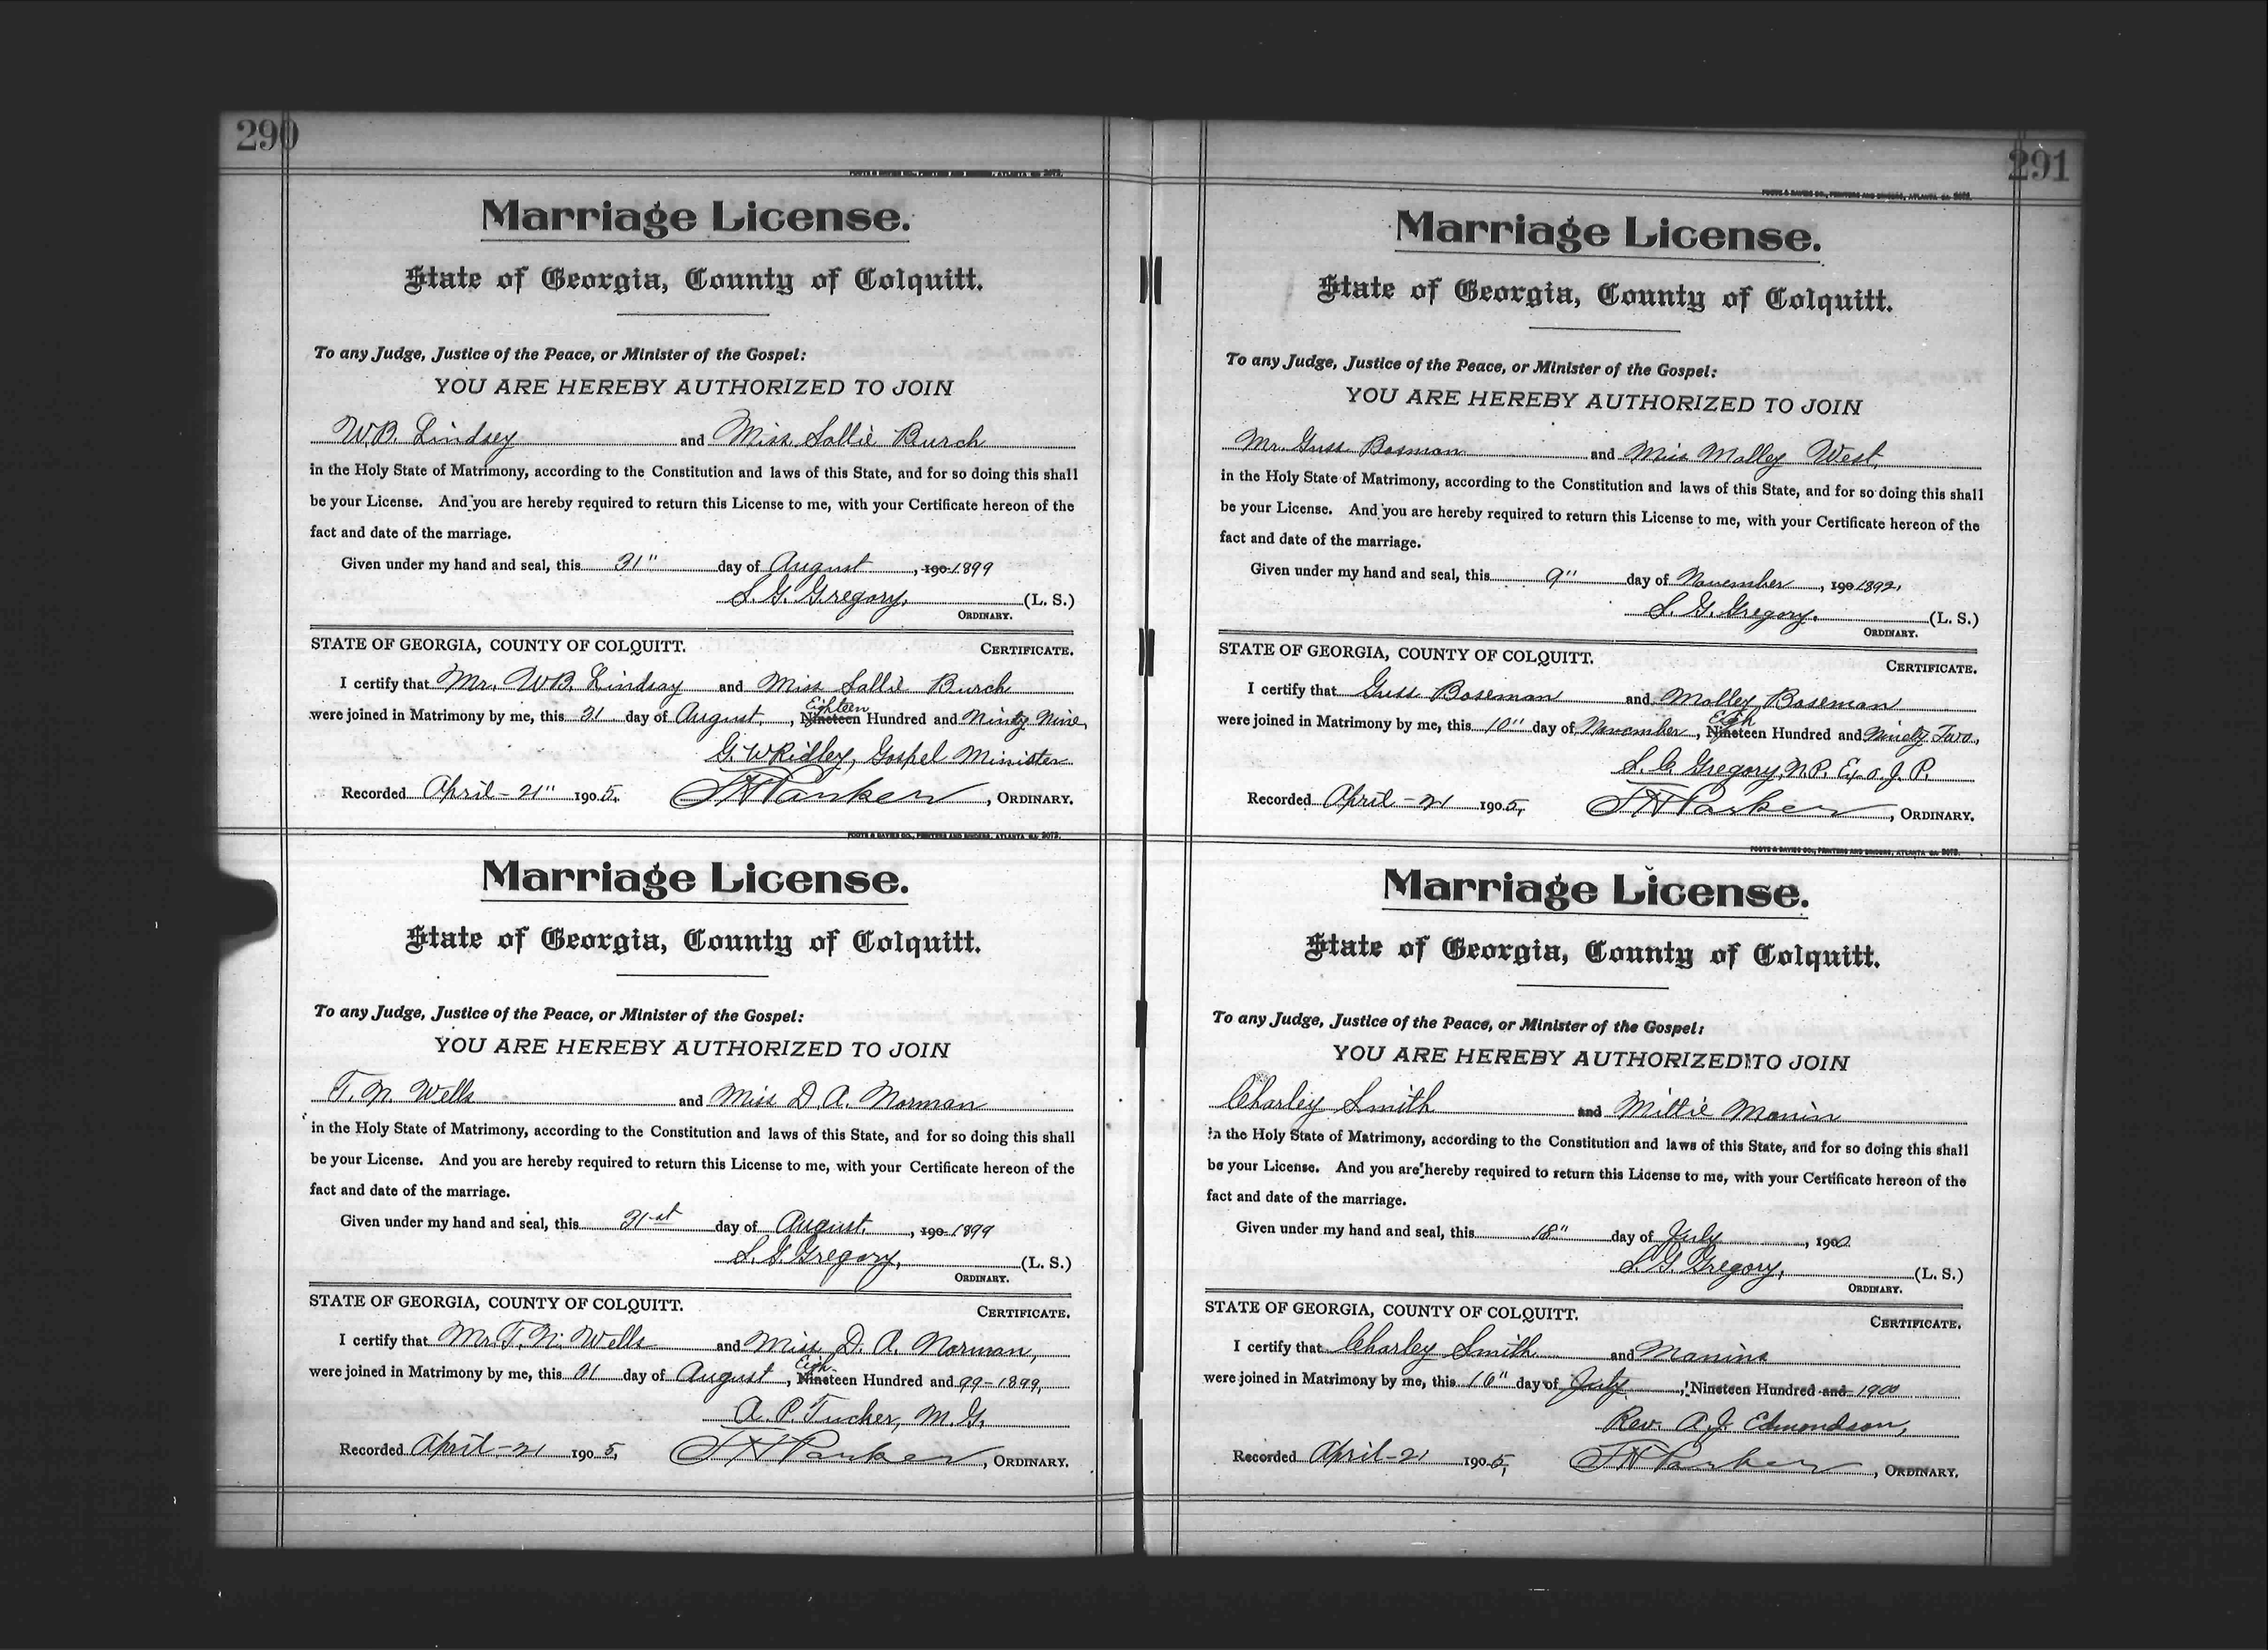 290
Marriage License.
State of Georgia, County of Colquitt.
To any Judge, Justice of the Peace, or Minister of the Gospel:
YOU ARE HEREBY AUTHORIZED TO JOIN
W.B. Lindsey and Miss Sallie Burch
in the Holy State of Matrimony, according to the Constitution and laws of this State, and for so doing this shall
be your License. And you are hereby required to return this License to me, with your Certificate hereon of the
fact and date of the marriage.
Given under my hand and seal, this 31" day of August, 190 1899
S. G. Gregory, (L. S.)
ORDINARY.
STATE OF GEORGIA, COUNTY OF COLQUITT. CERTIFICATE.
I certify that Mr. W.B. Lindsay and Miss Sallie Burch
Eighteen
were joined in Matrimony by me, this 31 day of August, Nineteen Hundred and Ninety Nine,
G. W Ridley, Gospel Minister
Recorded April - 21" 1905. , ORDINARY.
FOOTE & DAVIES CO., PRINTERS AND BINDERS, ATLANTA GA
Marriage License.
State of Georgia, County of Colquitt.
To any Judge, Justice of the Peace, or Minister of the Gospel:
YOU ARE HEREBY AUTHORIZED TO JOIN
T. N. Wells and Miss D. A. Norman
in the Holy State of Matrimony, according to the Constitution and laws of this State, and for so doing this shall
be your License. And you are hereby required to return this License to me, with your Certificate hereon of the
fact and date of the marriage.
Given under my hand and seal, this 31st day of August, 190 1899
S. G. Gregory, (L. S.)
ORDINARY.
STATE OF GEORGIA, COUNTY OF COLQUITT. CERTIFICATE.
I certify that Mr. T. N. Wells and Miss D. A. Norman,
Eigh
were joined in Matrimony by me, this 31 day of August, Nineteen Hundred and 99-1899,
A. P. Tucker, M. G.
Recorded April - 21 1905, , ORDINARY.
291
FOOTE & DAVIES CO., PRINTERS AND BINDERS, ATLANTA GA
Marriage License.
State of Georgia, County of Colquitt.
To any Judge, Justice of the Peace, or Minister of the Gospel:
YOU ARE HEREBY AUTHORIZED TO JOIN
Mr. Guss Bosman and Miss Molley West,
in the Holy State of Matrimony, according to the Constitution and laws of this State, and for so doing this shall
be your License. And you are hereby required to return this License to me, with your Certificate hereon of the
fact and date of the marriage.
Given under my hand and seal, this 9" day of November, 190 1892,
S. G. Gregory. (L. S.)
ORDINARY.
STATE OF GEORGIA, COUNTY OF COLQUITT. CERTIFICATE.
I certify that Guss Boseman and Molley Boseman
Eigh
were joined in Matrimony by me, this 10" day of November, Nineteen Hundred and Ninety Two,
Gregory, N.P. Ex. o. J. P.
Recorded April - 21 1905, , ORDINARY.
FOOTE & DAVIES CO., PRINTERS AND BINDERS, ATLANTA GA
Marriage License.
State of Georgia, County of Colquitt.
To any Judge, Justice of the Peace, or Minister of the Gospel:
YOU ARE HEREBY AUTHORIZED TO JOIN
Charley Smith and Mittie Manin
in the Holy State of Matrimony, according to the Constitution and laws of this State, and for so doing this shall
be your License. And you are hereby required to return this License to me, with your Certificate hereon of the
fact and date of the marriage.
Given under my hand and seal, this 18" day of July, 1900
S. G. Gregory, (L. S.)
ORDINARY.
STATE OF GEORGIA, COUNTY OF COLQUITT. CERTIFICATE.
I certify that Charley Smith and Manins
were joined in Matrimony by me, this 16" day of July, Nineteen Hundred and 1900
Rev. A. J. Edmondson,
Recorded April - 21 1905, , ORDINARY.